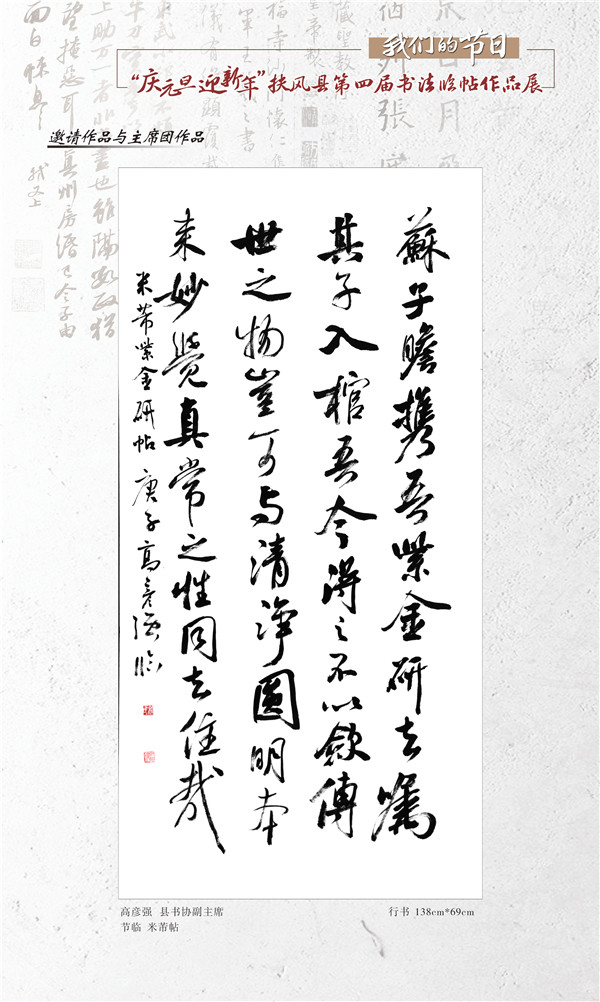 我们的节日
“庆元旦迎新年”扶风县第四届书法临帖作品展
邀请作品与主席团作品
蘇子瞻携吾紫金研去嘱
其子入棺吾今得之不以敛傳
世之物豈可与清净圆明本
来妙覺真常之性同去住哉
米芾紫金研帖 庚子高彦强临
高彦强 县书协副主席
节临 米芾帖
行书 138cm*69cm